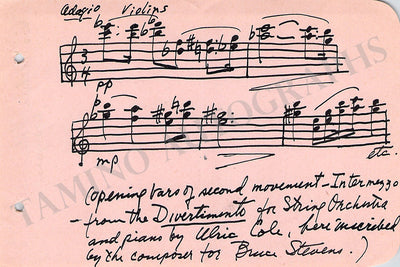 Adagio Violins
3
4
pp
mp
etc.
TAMINO AUTOGRAPHS
(opening bars of second movement - Intermezzo
- from the Divertimento for String Orchestra
and piano by Ulric Cole, here inscribed
by the composer for Bruce Stevens.)